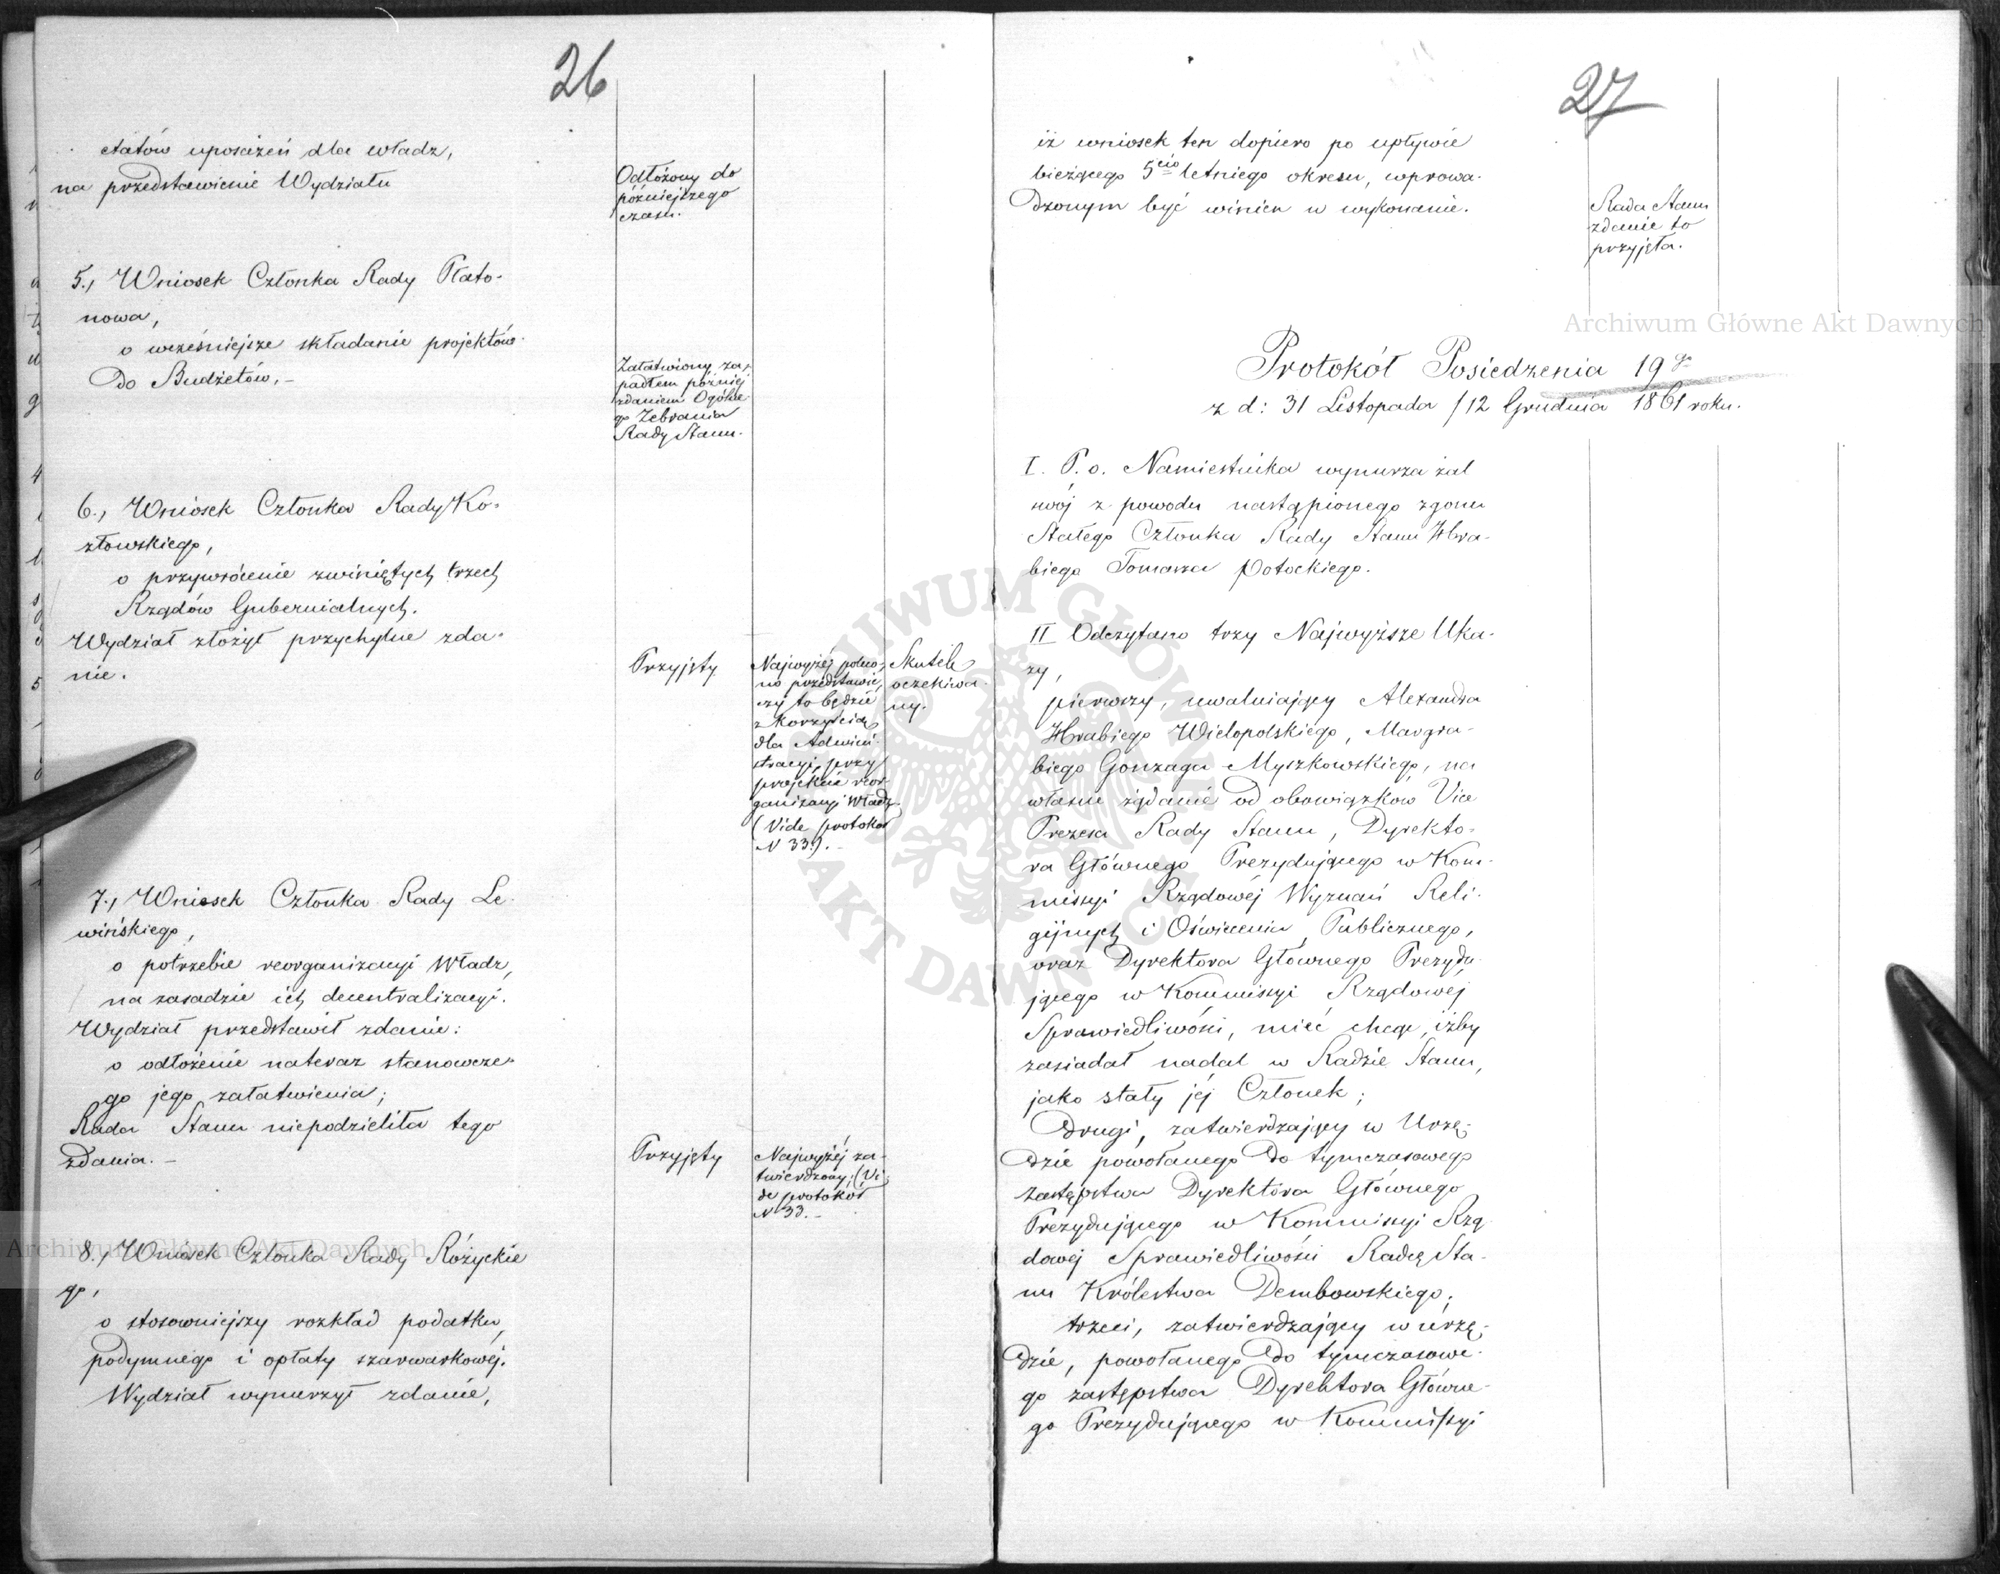 26
etatów uposażeń dla władz,
na przedstawienie Wydziału
Odłożony do
późniejszego
czasu.
5., Wniosek Członka Rady Płato-
nowa,
o wcześniejsze składanie projektów
do Budżetów,–
Załatwiony za-
padłem później
zdaniem Ogólne-
go Zebrania
Rady Stanu.
6., Wniosek Członka Rady Ko-
złowskiego,
o przywrócenie zwiniętych trzech
Rządów Gubernialnych.
Wydział złożył przychylne zda-
nie.
Przyjęty
Najwyżéj polece-
no przedstawić,
czy to będzie
z korzyścią
dla Admini-
stracyi, przy
projekcie reor-
ganizacyi Władz
(Vide protokół
N 33.).–
Skutek
oczekiwa-
ny.
7., Wniosek Członka Rady Le-
wińskiego,
o potrzebie reorganizacyi Władz,
na zasadzie ich decentralizacyi.
Wydział przedstawił zdanie:
o odłożenie nateraz stanowcze-
go jego załatwienia;
Rada Stanu niepodzieliła tego
zdania.–
Przyjęty
Najwyżéj za-
twierdzony; (Vi-
de protokół
N 33.–
8., Wniosek Członka Rady Różyckie
go,
o stosowniejszy rozkład podatku
podymnego i opłaty szarwarkowéj.
Wydział wynurzył zdanie,
27
iż wniosek ten dopiero po upływie
bieżącego 5cio letniego okresu, wprowa-
dzonym być winien w wykonanie.
Rada Stanu
zdanie to
przyjęła.
Protokół Posiedzenia 19go
z d: 31 Listopada / 12 Grudnia 1861 roku.
I. P. o. Namiestnika wynurza żal
swój z powodu nastąpionego zgonu
Stałego Członka Rady Stanu Hra-
biego Tomasza Potockiego.
II Odczytano trzy Najwyższe Uka-
zy,
pierwszy, uwalniający Alexandra
Hrabiego Wielopolskiego, Margra-
biego Gonzaga Myszkowskiego, na
własne żądanie od obowiązków Vice
Prezesa Rady Stanu, Dyrekto-
ra Głównego Prezydującego w Kom-
missyi Rządowéj Wyznań Reli-
gijnych i Oświecenia Publicznego,
oraz Dyrektora Głównego Prezydu-
jącego w Kommissyi Rządowéj
Sprawiedliwości, mieć chcąc, iżby
zasiadał nadal w Radzie Stanu,
jako stały jéj Członek;
Drugi, zatwierdzający w Urzę-
dzie powołanego do tymczasowego
zastępstwa Dyrektora Głównego
Prezydującego w Kommissyi Rzą
dowéj Sprawiedliwości Radcę Sta-
nu Królestwa Dembowskiego;
trzeci, zatwierdzający w urzę-
dzie, powołanego do tymczasowe-
go zastępstwa Dyrektora Główne-
go Prezydującego w Kommissyi
Archiwum Główne Akt Dawnych
Archiwum Główne Akt Dawnych
ARCHIWUM GŁÓWNE
AKT DAWNYCH